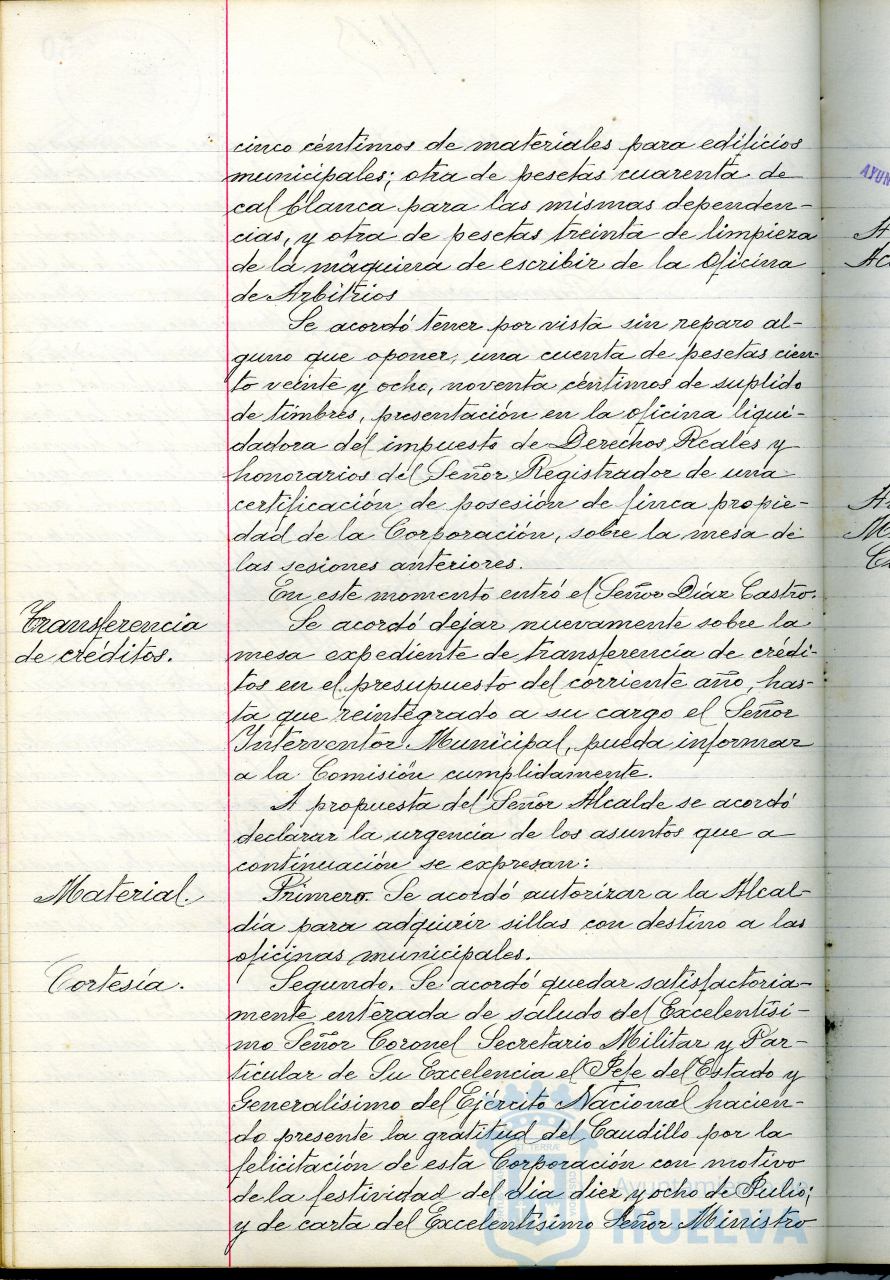 cinco céntimos de materiales para edificios
municipales; otra de pesetas cuarenta de
cal blanca para las mismas dependen-
cias, y otra de pesetas treinta de limpieza
de la máquina de escribir de la Oficina
de Arbitrios
Se acordó tener por vista sin reparo al-
guno que oponer, una cuenta de pesetas cien-
to veinte y ocho, noventa céntimos de suplido
de timbres, presentación en la oficina liqui-
dadora del impuesto de Derechos Reales y
honorarios del Señor Registrador de una
certificación de posesión de finca propie-
dad de la Corporación, sobre la mesa de
las sesiones anteriores.
En este momento entró el Señor Díaz Castro.
Transferencia
de créditos.
Se acordó dejar nuevamente sobre la
mesa expediente de transferencia de crédi-
tos en el presupuesto del corriente año, has-
ta que reintegrado a su cargo el Señor
Interventor Municipal, pueda informar
a la Comisión cumplidamente.
A propuesta del Señor Alcalde se acordó
declarar la urgencia de los asuntos que a
continuación se expresan:
Material.
Primero. Se acordó autorizar a la Alcal-
día para adquirir sillas con destino a las
oficinas municipales.
Cortesía.
Segundo. Se acordó quedar satisfactoria-
mente enterada de saludo del Excelentísi-
mo Señor Coronel Secretario Militar y Par-
ticular de Su Excelencia el Jefe del Estado y
Generalísimo del Ejército Nacional hacien-
do presente la gratitud del Caudillo por la
felicitación de esta Corporación con motivo
de la festividad del día diez y ocho de Julio;
y de carta del Excelentísimo Señor Ministro
Ayuntamiento de
HUELVA